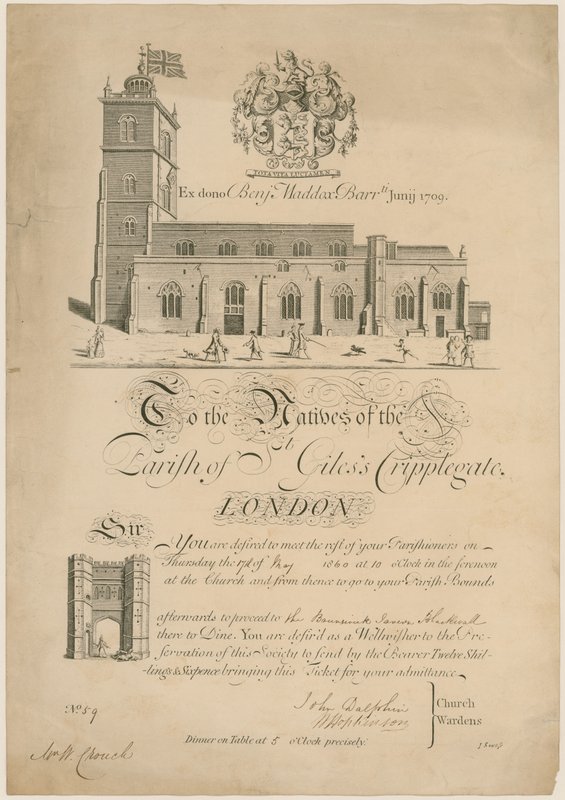 TOTA VITA LUCTAMEN
Ex dono Benj. Maddox Barr.tt Junij 1709.
To the Natives of the
Parish of St Giles's Cripplegate.
LONDON
Sir
You are desired to meet the rest of your Parishioners on
Thursday the 17th of May 1860 at 10 o'Clock in the forenoon
at the Church and from thence to go to your Parish Bounds
afterwards to proceed to the Brunswick Tavern Blackwall
there to Dine. You are desir'd as a Wellwisher to the Pre-
servation of this Society to send by the Bearer Twelve Shil-
lings & Sixpence bringing this Ticket for your admittance
John Dalphin
W Hopkinson
Church
Wardens
No. 59
Dinner on Table at 5 o'Clock precisely.
Mr W. Crouch